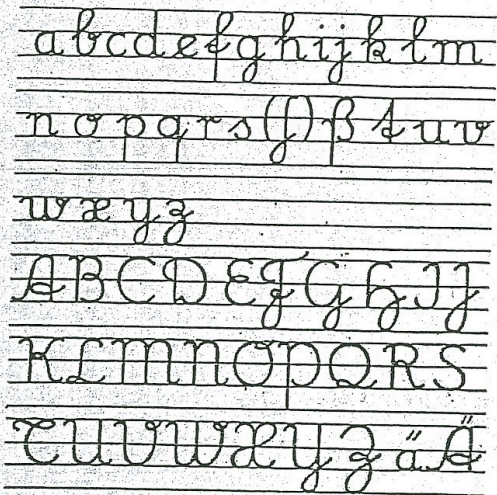 a b c d e f g h i j k l m
n o p q r s (ſ) ß t u v
w x y z
A B C D E F G H I J
K L M N O P Q R S
T U V W X Y Z ä Ä